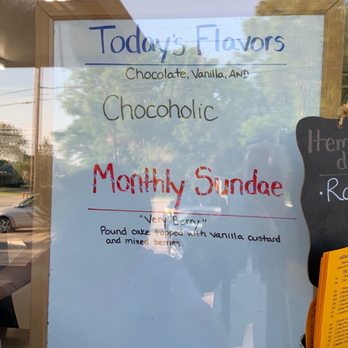 Today's Flavors
Chocolate, Vanilla, AND
Chocoholic
Monthly Sundae
"Very Berry"
Pound cake topped with vanilla custard
and mixed berries.